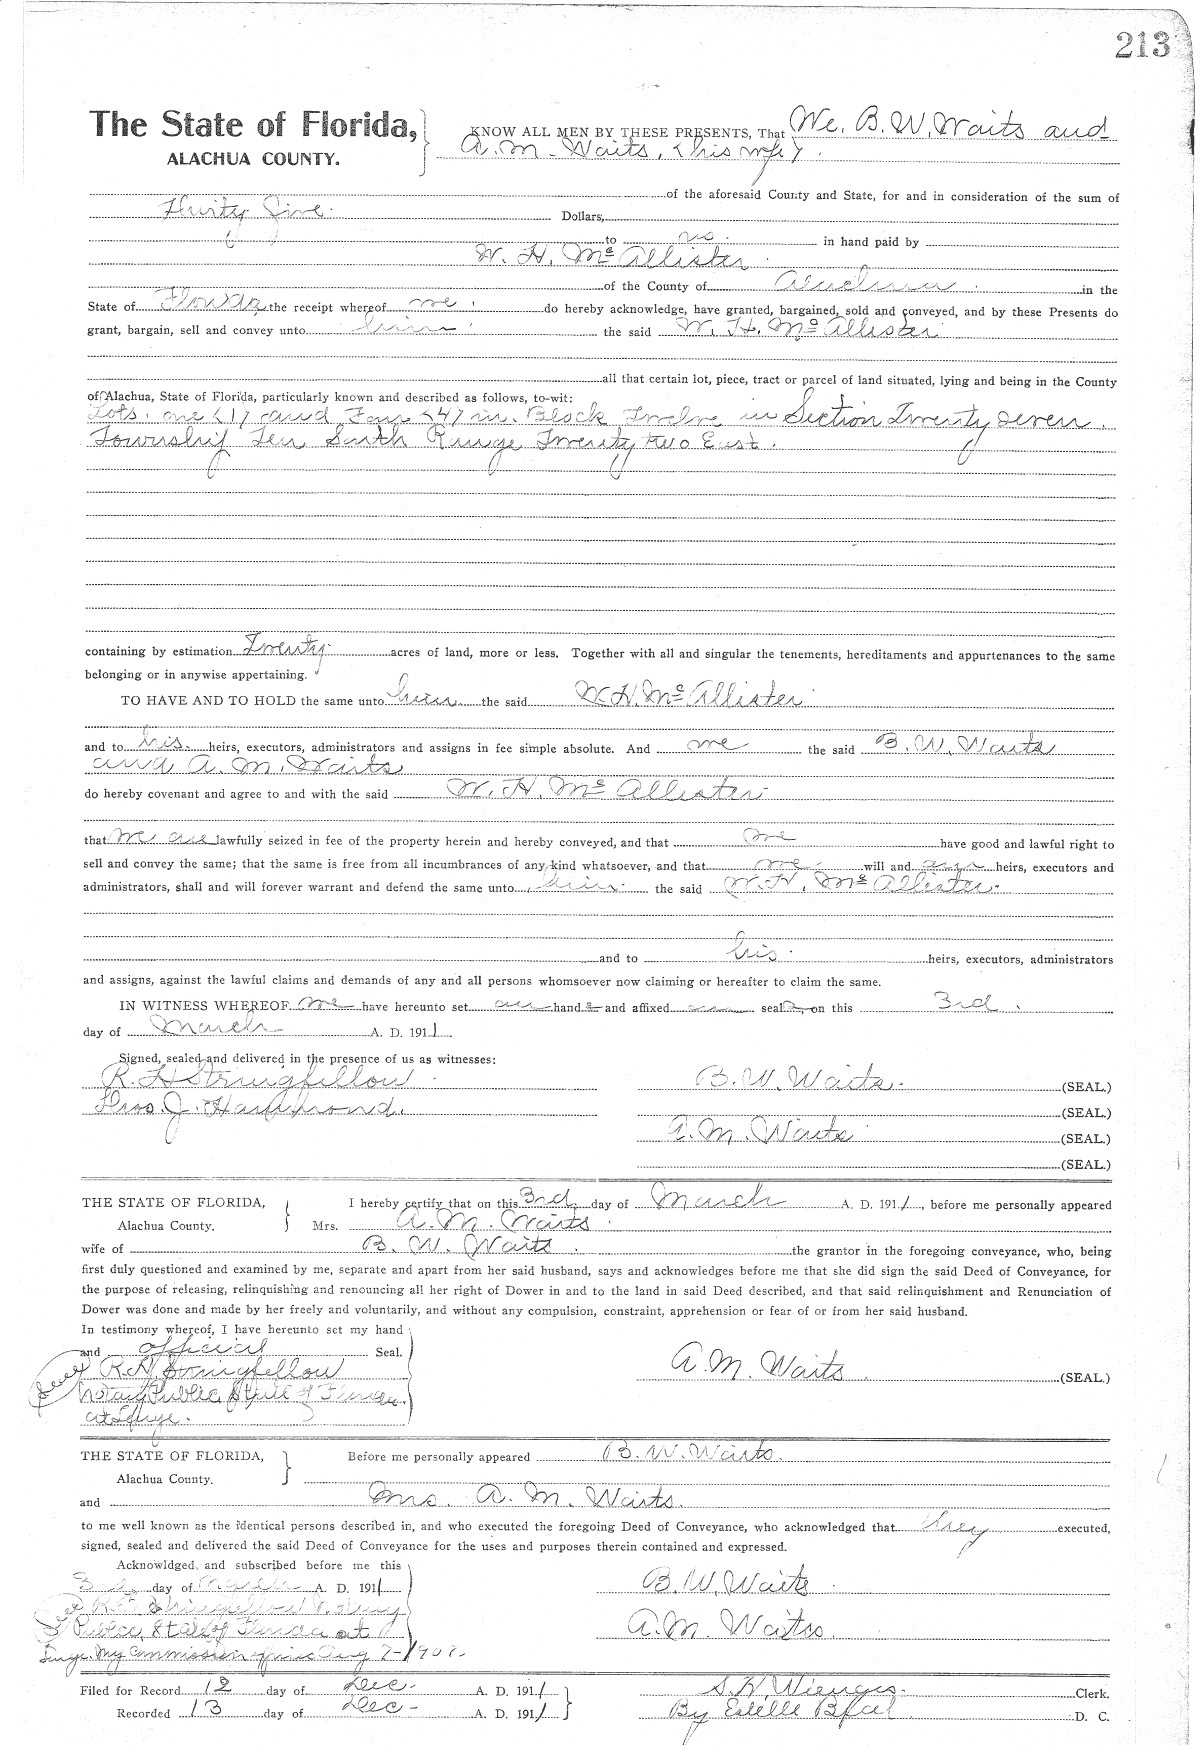 213
The State of Florida, KNOW ALL MEN BY THESE PRESENTS, That We, B. W. Waits and
ALACHUA COUNTY. A. M. Waits, (his wife)
of the aforesaid County and State, for and in consideration of the sum of
Thirty Five Dollars,
to us in hand paid by
W. H. McAllister
of the County of Alachua in the
State of Florida the receipt whereof we do hereby acknowledge, have granted, bargained, sold and conveyed, and by these Presents do
grant, bargain, sell and convey unto him the said W. H. McAllister
all that certain lot, piece, tract or parcel of land situated, lying and being in the County
of Alachua, State of Florida, particularly known and described as follows, to-wit:
Lots. one (1) and Four (4) in. Block Twelve in Section Twenty seven.
Township Ten South Range Twenty two East.
containing by estimation Twenty acres of land, more or less. Together with all and singular the tenements, hereditaments and appurtenances to the same
belonging or in anywise appertaining.
TO HAVE AND TO HOLD the same unto him the said W. H. McAllister
and to his heirs, executors, administrators and assigns in fee simple absolute. And we the said B. W. Waits
and A. M. Waits
do hereby covenant and agree to and with the said W. H. McAllister
that we are lawfully seized in fee of the property herein and hereby conveyed, and that we have good and lawful right to
sell and convey the same; that the same is free from all incumbrances of any kind whatsoever, and that we will and our heirs, executors and
administrators, shall and will forever warrant and defend the same unto him the said W. H. McAllister
and to his heirs, executors, administrators
and assigns, against the lawful claims and demands of any and all persons whomsoever now claiming or hereafter to claim the same.
IN WITNESS WHEREOF we have hereunto set our hands and affixed our seals, on this 3rd.
day of March A. D. 1911
Signed, sealed and delivered in the presence of us as witnesses:
R. H Stringfellow B. W. Waits. (SEAL.)
Thos. J. Hammond. (SEAL.)
A. M. Waits (SEAL.)
(SEAL.)
THE STATE OF FLORIDA, I hereby certify that on this 3rd. day of March A. D. 1911, before me personally appeared
Alachua County. Mrs. A. M. Waits
wife of B. W. Waits. the grantor in the foregoing conveyance, who, being
first duly questioned and examined by me, separate and apart from her said husband, says and acknowledges before me that she did sign the said Deed of Conveyance, for
the purpose of releasing, relinquishing and renouncing all her right of Dower in and to the land in said Deed described, and that said relinquishment and Renunciation of
Dower was done and made by her freely and voluntarily, and without any compulsion, constraint, apprehension or fear of or from her said husband.
In testimony whereof, I have hereunto set my hand
and official Seal.
Seal R. H Stringfellow A. M. Waits (SEAL.)
Notary Public, State of Florida.
at Large.
THE STATE OF FLORIDA, Before me personally appeared B. W. Waits.
Alachua County.
and Mrs. A. M. Waits.
to me well known as the identical persons described in, and who executed the foregoing Deed of Conveyance, who acknowledged that they executed,
signed, sealed and delivered the said Deed of Conveyance for the uses and purposes therein contained and expressed.
Acknowldged, and subscribed before me this
3rd. day of March A. D. 1911 B. W. Waits
Seal R. H Stringfellow Notary
Public, State of Florida at A. M. Waits.
Large. My Commission expires Aug 7-
Filed for Record 12 day of Dec- A. D. 1911 S. H. Wienges. Clerk.
Recorded 13 day of Dec- A. D. 1911 By Estelle D. C.